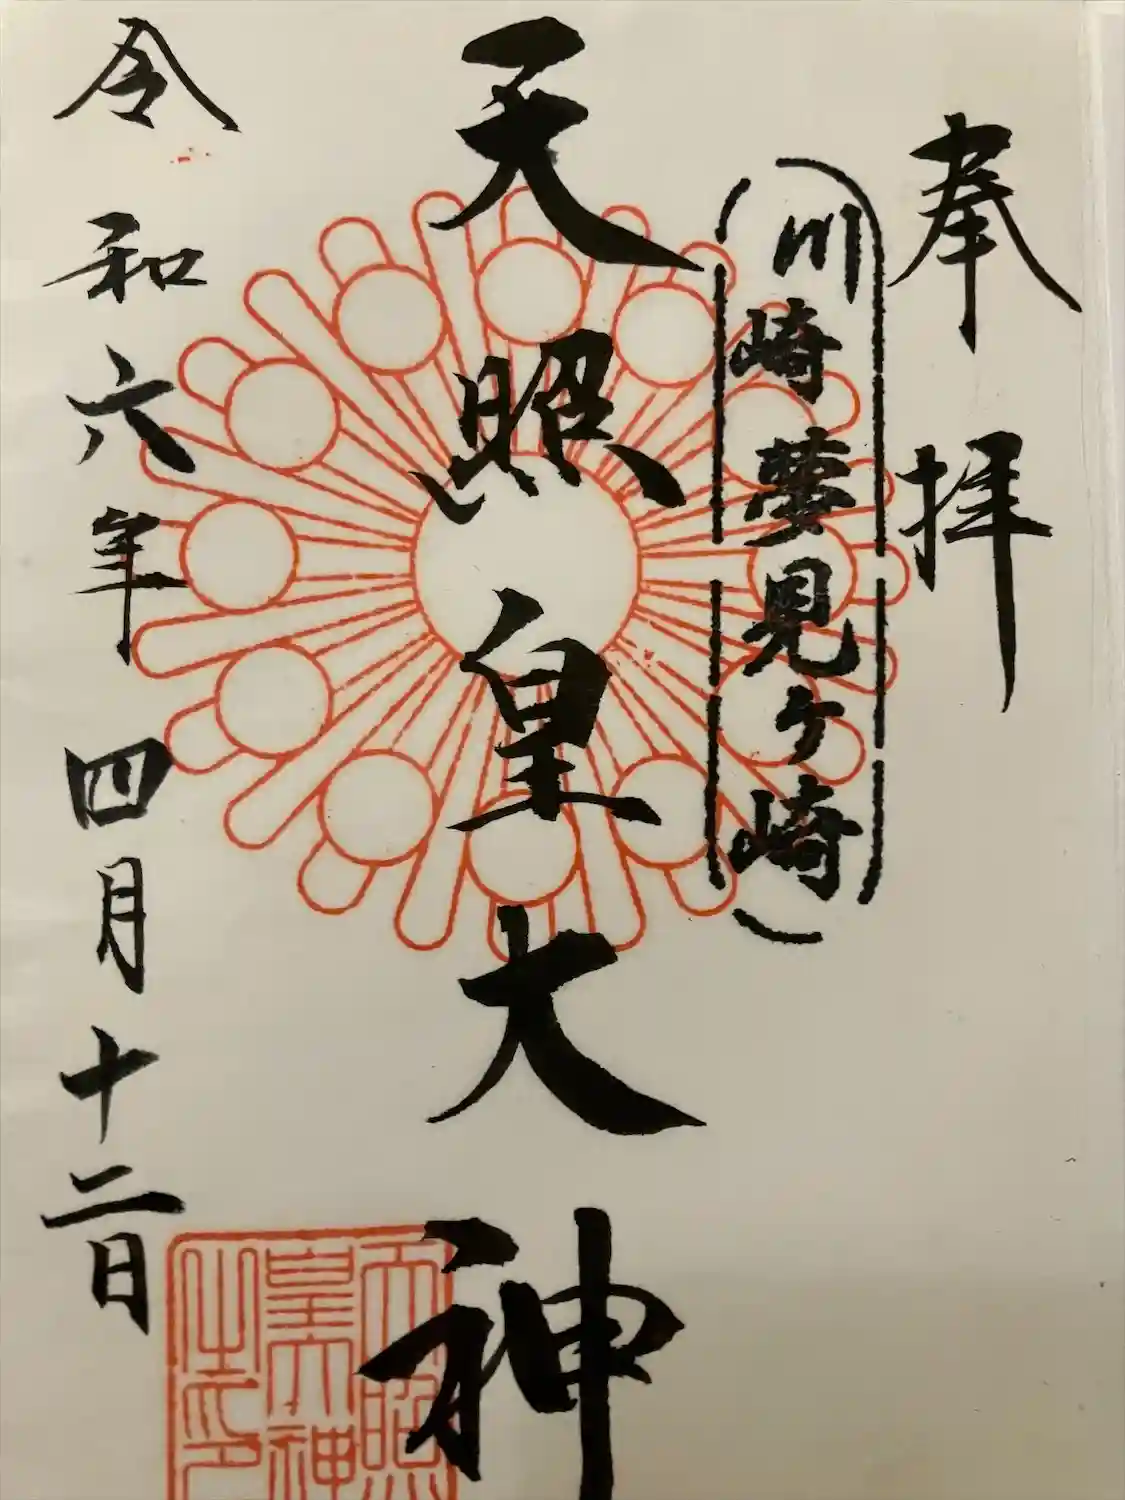 奉拝
川崎夢見ヶ崎
天照皇大神
令和六年四月十二日
天照
皇大神
之印